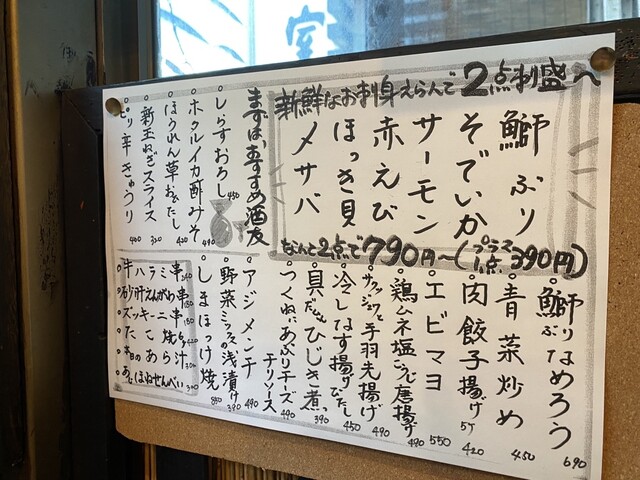 新鮮なお刺身えらんで2点刺盛へ
鰤ぶり
そでいか
サーモン
赤えび
ほっき貝
メサバ
なんと2点で790円〜(プラス1点390円)
まずは、おすすめ酒友
しらすおろし 450
ホタルイカ酢みそ 490
ほうれん草おひたし 420
新玉ねぎスライス 320
ピリ辛きゅうり 400
鰤ぶりなめろう 690
青菜炒め 450
肉餃子揚げ 5ケ 420
エビマヨ 550
鶏ムネ塩こうじ唐揚げ 490
サクッジュワッと手羽先揚げ 490
冷しなす揚げびたし 450
具だくさんひじき煮 390
つくねにあぶりチーズ
チリソース 490
アジメンチ 490
野菜ミックス浅漬け 390
しまほっけ焼 850
牛ハラミ串
砂肝えんがわ串
ズッキーニ串 150
たこ焼き
本日のあら汁 300
あじほねせんべい 300
室